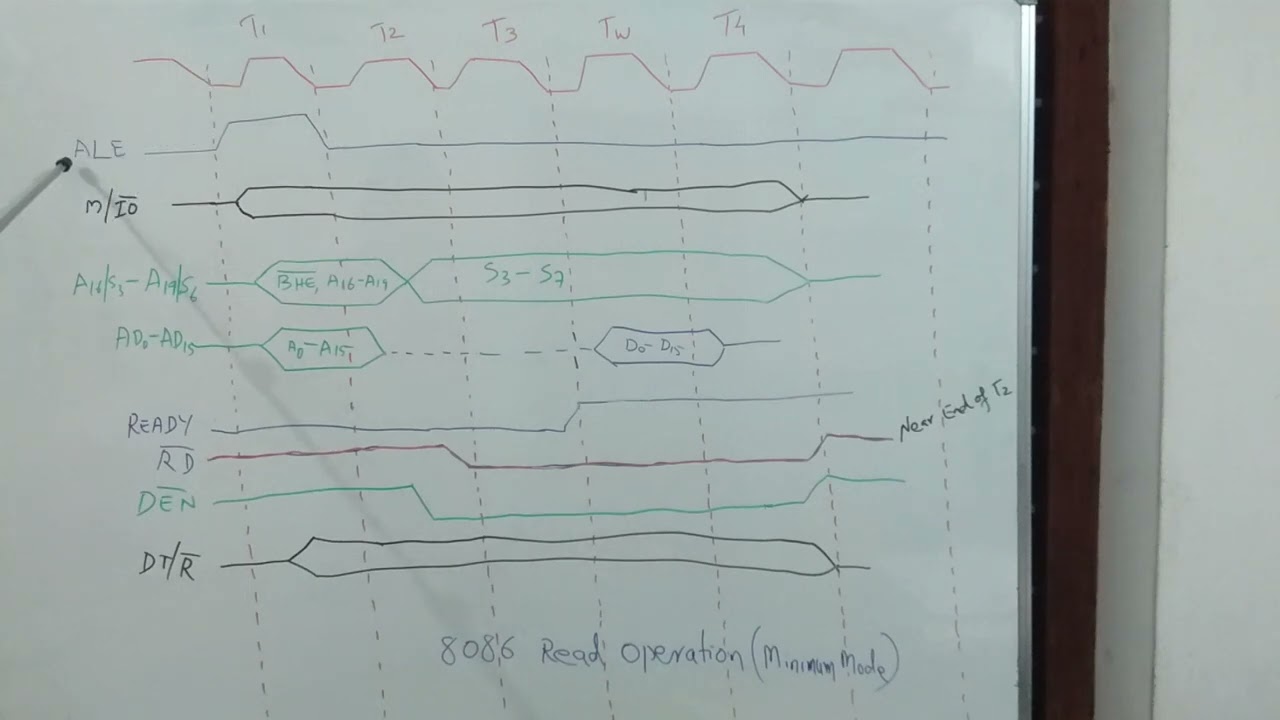 T1 T2 T3 TW T4
ALE
M/I̅O̅
A16/S3-A19/S6 B̅H̅E̅, A16-A19 S3-S7
AD0-AD15 A0-A15 D0-D15
READY
Near End of T2
R̅D̅
DE̅N̅
DT/R̅
8086 Read Operation (Minimum Mode)